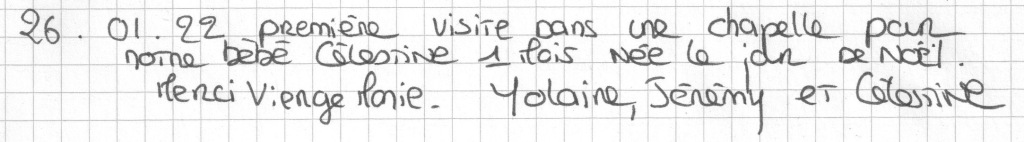 26.01.22 première visite dans une chapelle pour
notre bébé Célestine 1 mois née le jour de Noël.
Merci Vierge Marie. Yolaine, Jérémy et Célestine